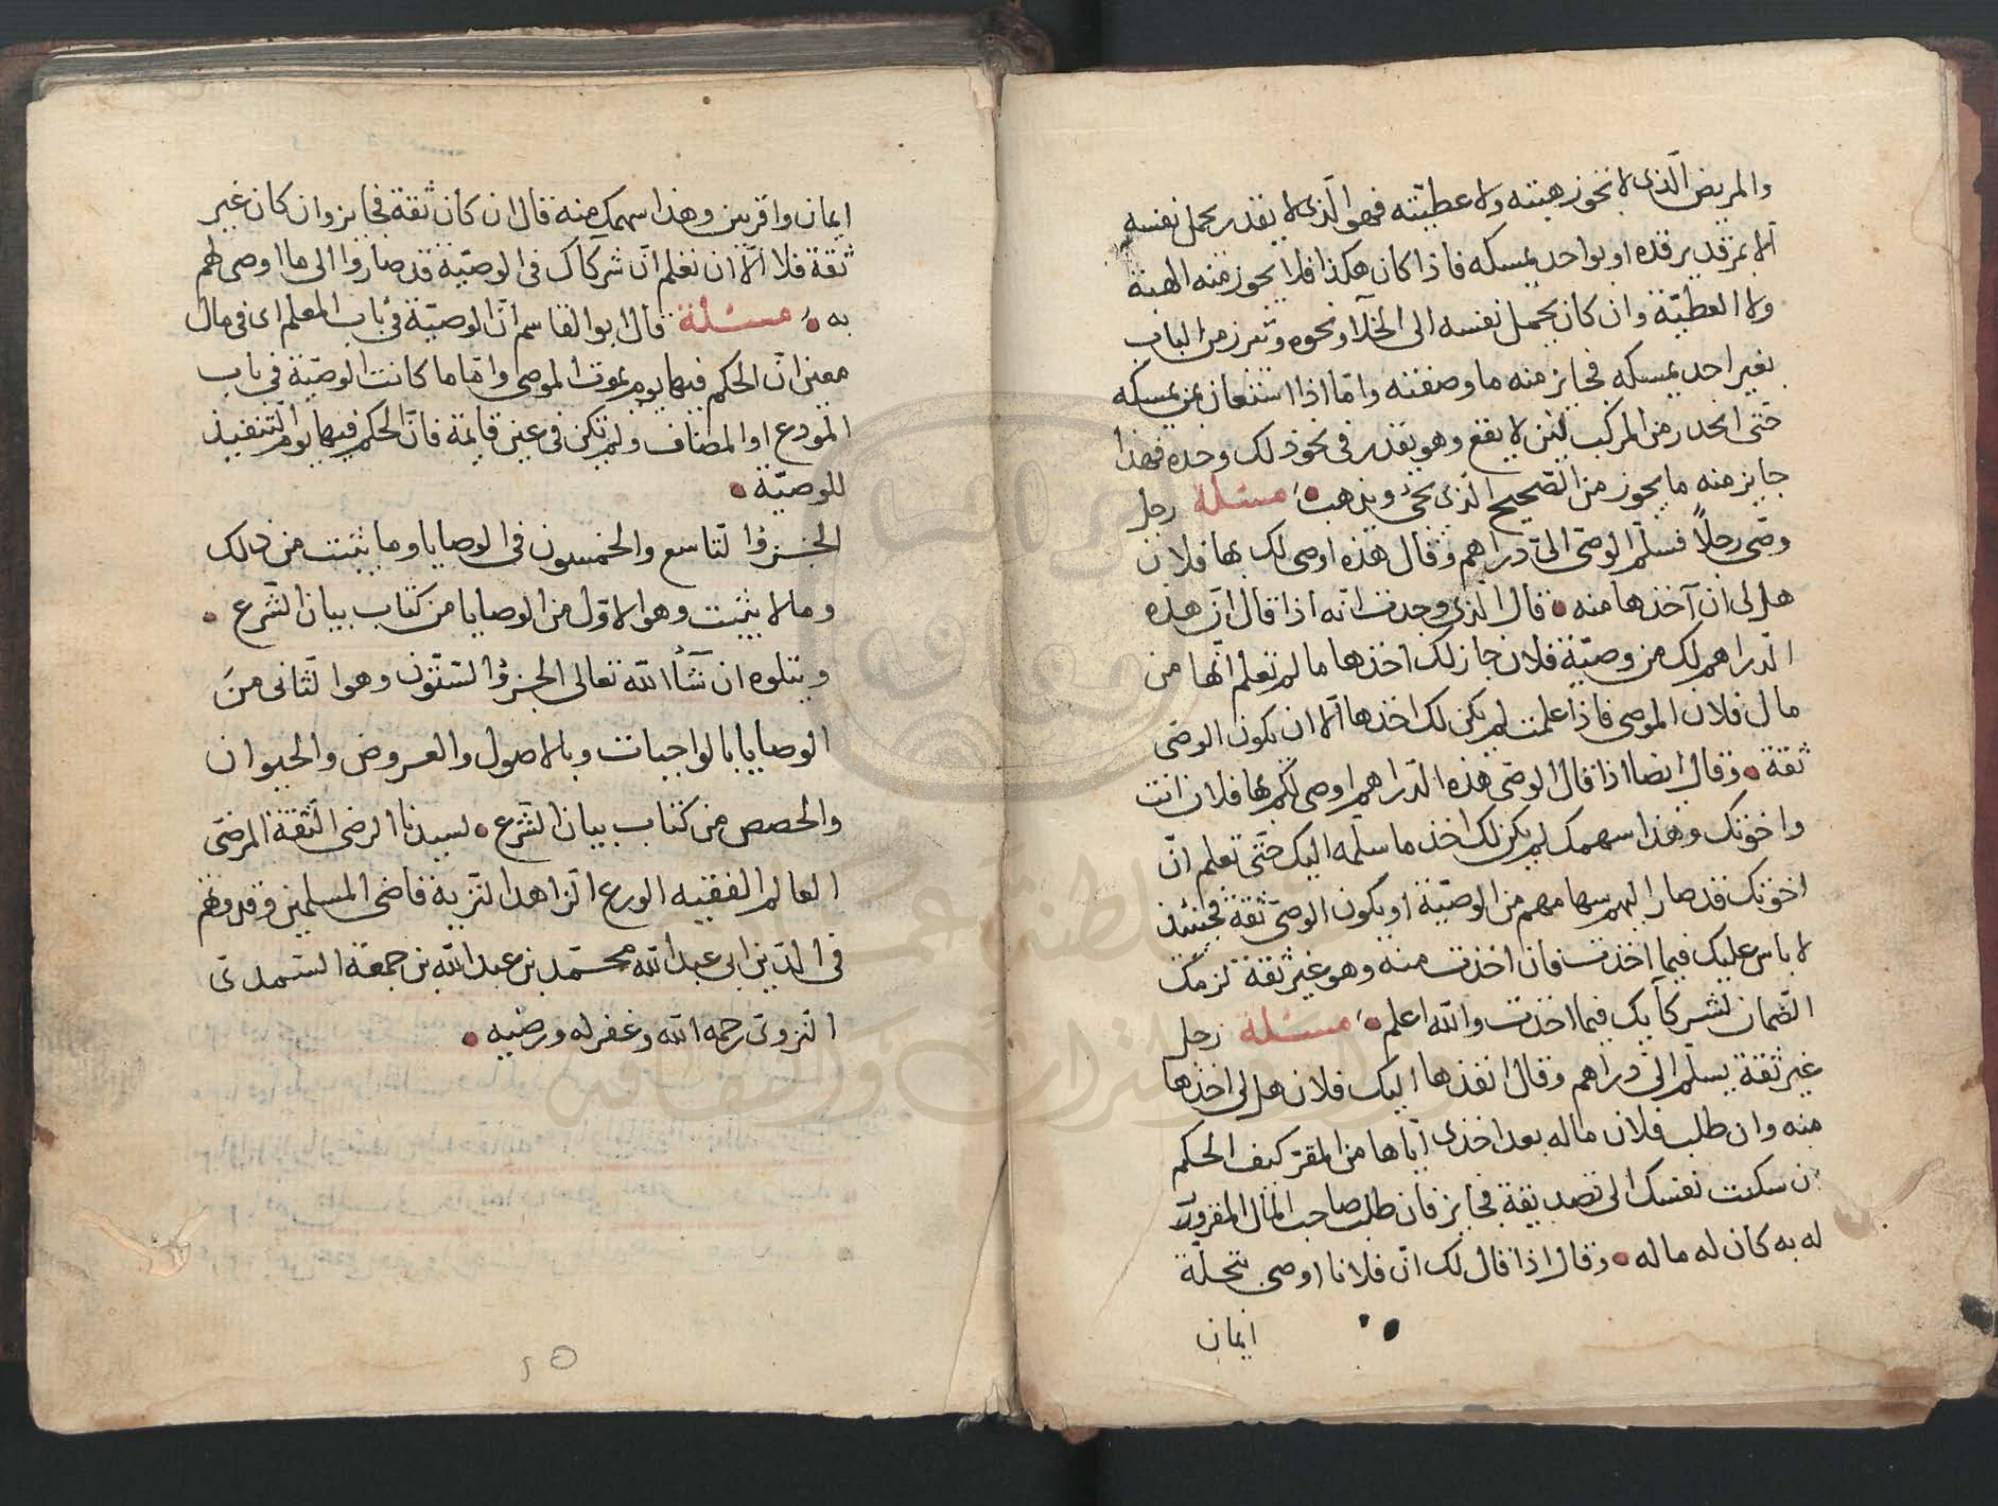 والمريض الذي لا تجوز هبته ولا عطيته فهو الذي لا يقدر يحمل نفسه
الا بمن قد يرفده او بواحد يمسكه فاذا كان هكذا فلا يجوز منه الهبة
ولا العطيّة وان كان يحمل نفسه الى الخلآ ونحوه وتبرز من الباب
بغير احد يمسكه فجايز منه ما وصفته واما اذا استعان بمن يمسكه
حتى انحدر من المركب لئن لا يقع وهو يقدر في نحو ذلك وحده فهذا
جايز منه ما يجوز من الصحيح الذي يجئ ويذهب مسئلة رجل
وصّى رجلاً فسلّم الوصيّ اليّ دراهم وقال هذه اوصى لك بها فلان
هل لي ان آخذها منه قال الذي وجدت انه اذا قال ان هذه
الدراهم لك من وصيّة فلان جاز لك اخذها ما لم تعلم انها من
مال فلان الموصي فاذا علمت لم يكن لك اخذها الا ان يكون الوصّي
ثقة وقال ايضا اذا قال الوصي هذه الدراهم اوصى لكم بها فلان انت
واخوتك وهذا سهمك لم يكن لك اخذ ما سلمه اليك حتّى تعلم انّ
اخوتك قد صار اليهم سهامهم من الوصيّة او يكون الوصيّ ثقة فحينئذ
لا باس عليك فيما اخذت فان اخذت منه وهو غير ثقة لزمك
الضمان لشركآيك فيما اخذت والله اعلم مسئلة رجل
غير ثقة يسلّم اليّ دراهم وقال انفذها اليك فلان هل لي اخذها
منه وان طلب فلان ماله بعد اخذي ايّاها من المقرّ كيف الحكم
ان سكنت نفسك الى تصديقه فجايز فان طلب صاحب المال المقرور
له به كان له ماله وقال اذا قال لك ان فلانا اوصى بنخلة
ايمان
ايمان واقربين وهذا سهمك منه قال ان كان ثقة فجايز وان كان غير
ثقة فلا الّا ان تعلم انّ شركآك في الوصيّة قد صاروا الى ما اوصى لهم
به مسئلة قال ابو القاسم انّ الوصيّة في باب المعلم اى في مال
معين انّ الحكم فيها يوم يموت الموصي وامّا ما كانت الوصيّة في باب
المودع او المضاف ولم تكن في عين قايمة فانّ الحكم فيها يوم التنفيذ
للوصيّة
الجزؤ التاسع والخمسون في الوصايا وما يثبت من ذلك
وما لا يثبت وهو الاوّل من الوصايا من كتاب بيان الشرع
ويتلوه ان شآء الله تعالى الجزؤ الستّون وهو الثاني من
الوصايا بالواجبات وبالاصول والعروض والحيوان
والحصص من كتاب بيان الشرع لسيدنا الرضى الثقة المرضّى
العالم الفقيه الورع الزاهد النزيه قاضى المسلمين وقدوتهم
في الدين ابي عبد الله محمّد بن عبد الله بن جمعة السّمدى
النزوى رحمه الله وغفر له ورضيه